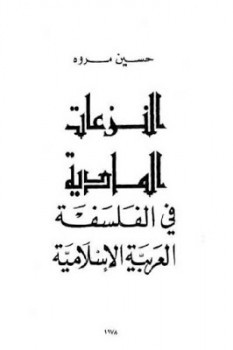 حسين مروه
النزعات
المادية
في الفلسفة
العربية الإسلامية
١٩٧٨